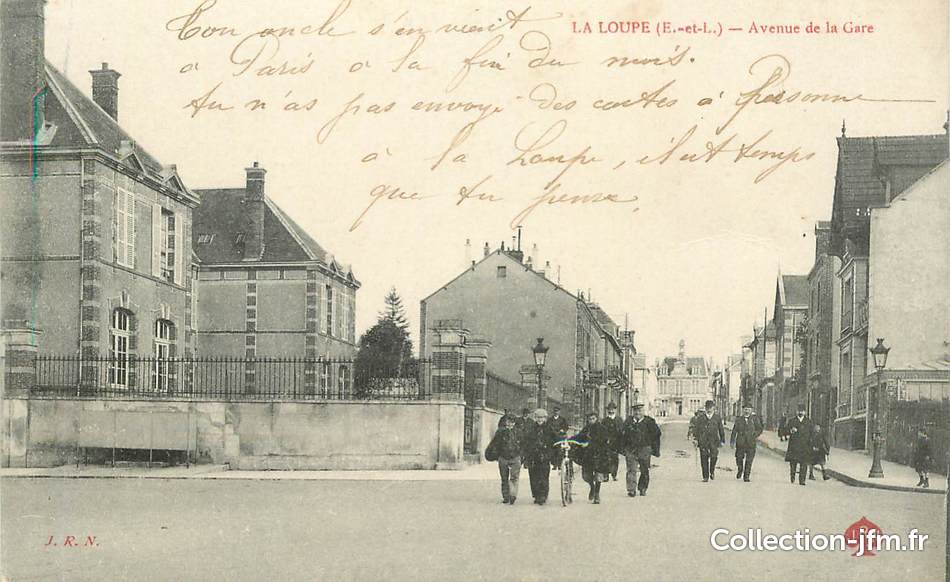 LA LOUPE (E.-et-L.) — Avenue de la Gare
Ton oncle s'en vient
à Paris à la fin du mois.
tu n'as pas envoyé des cartes à Personne
à la Loupe, il est temps
que tu penses
J. R. N.
Collection-jfm.fr